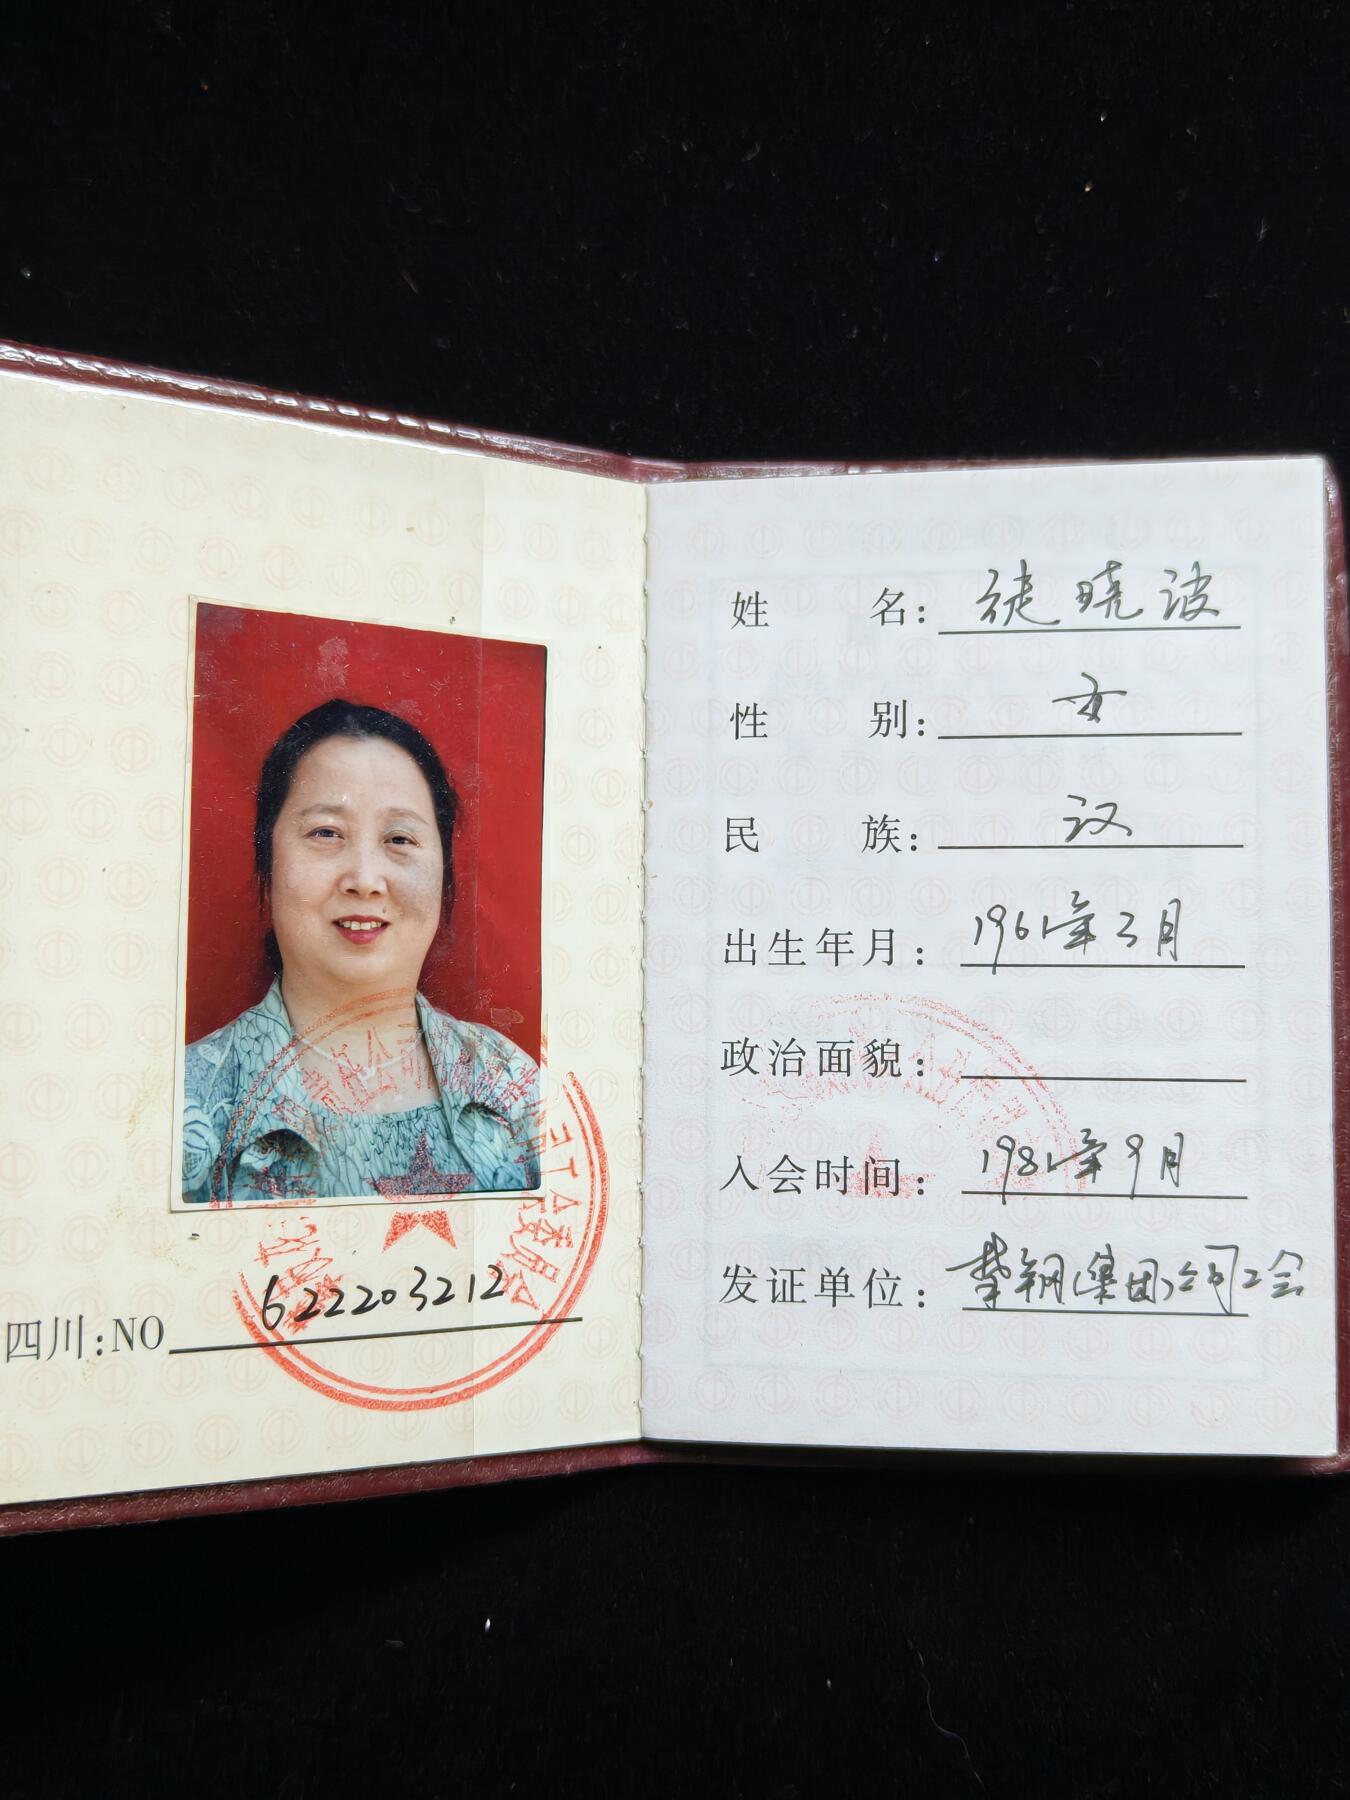 四川:NO 6222203212
姓名: 徒晓波
性别: 女
民族: 汉
出生年月: 1961年3月
政治面貌:
入会时间: 1981年9月
发证单位: 攀钢(集团)公司工会